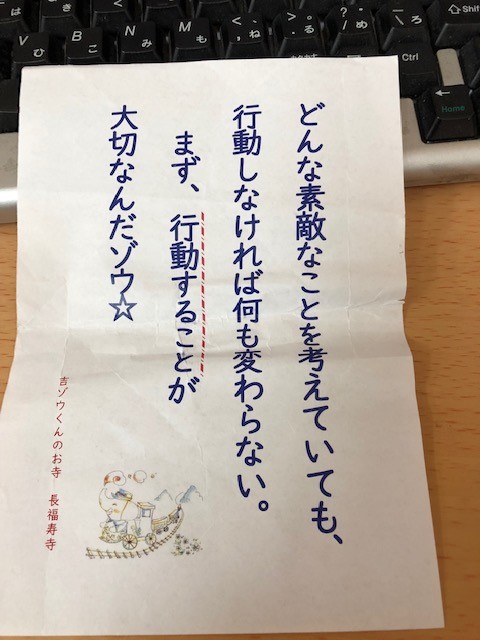 どんな素敵なことを考えていても、
行動しなければ何も変わらない。
まず、行動することが
大切なんだゾウ☆
吉ゾウくんのお寺 長福寿寺
き
は
こ
V ひ
B こ
N み
M も
< 、
, ね
> 。
. る
? ・
/ め
_
\ ろ
⇧Shift
Ctrl
←
Home